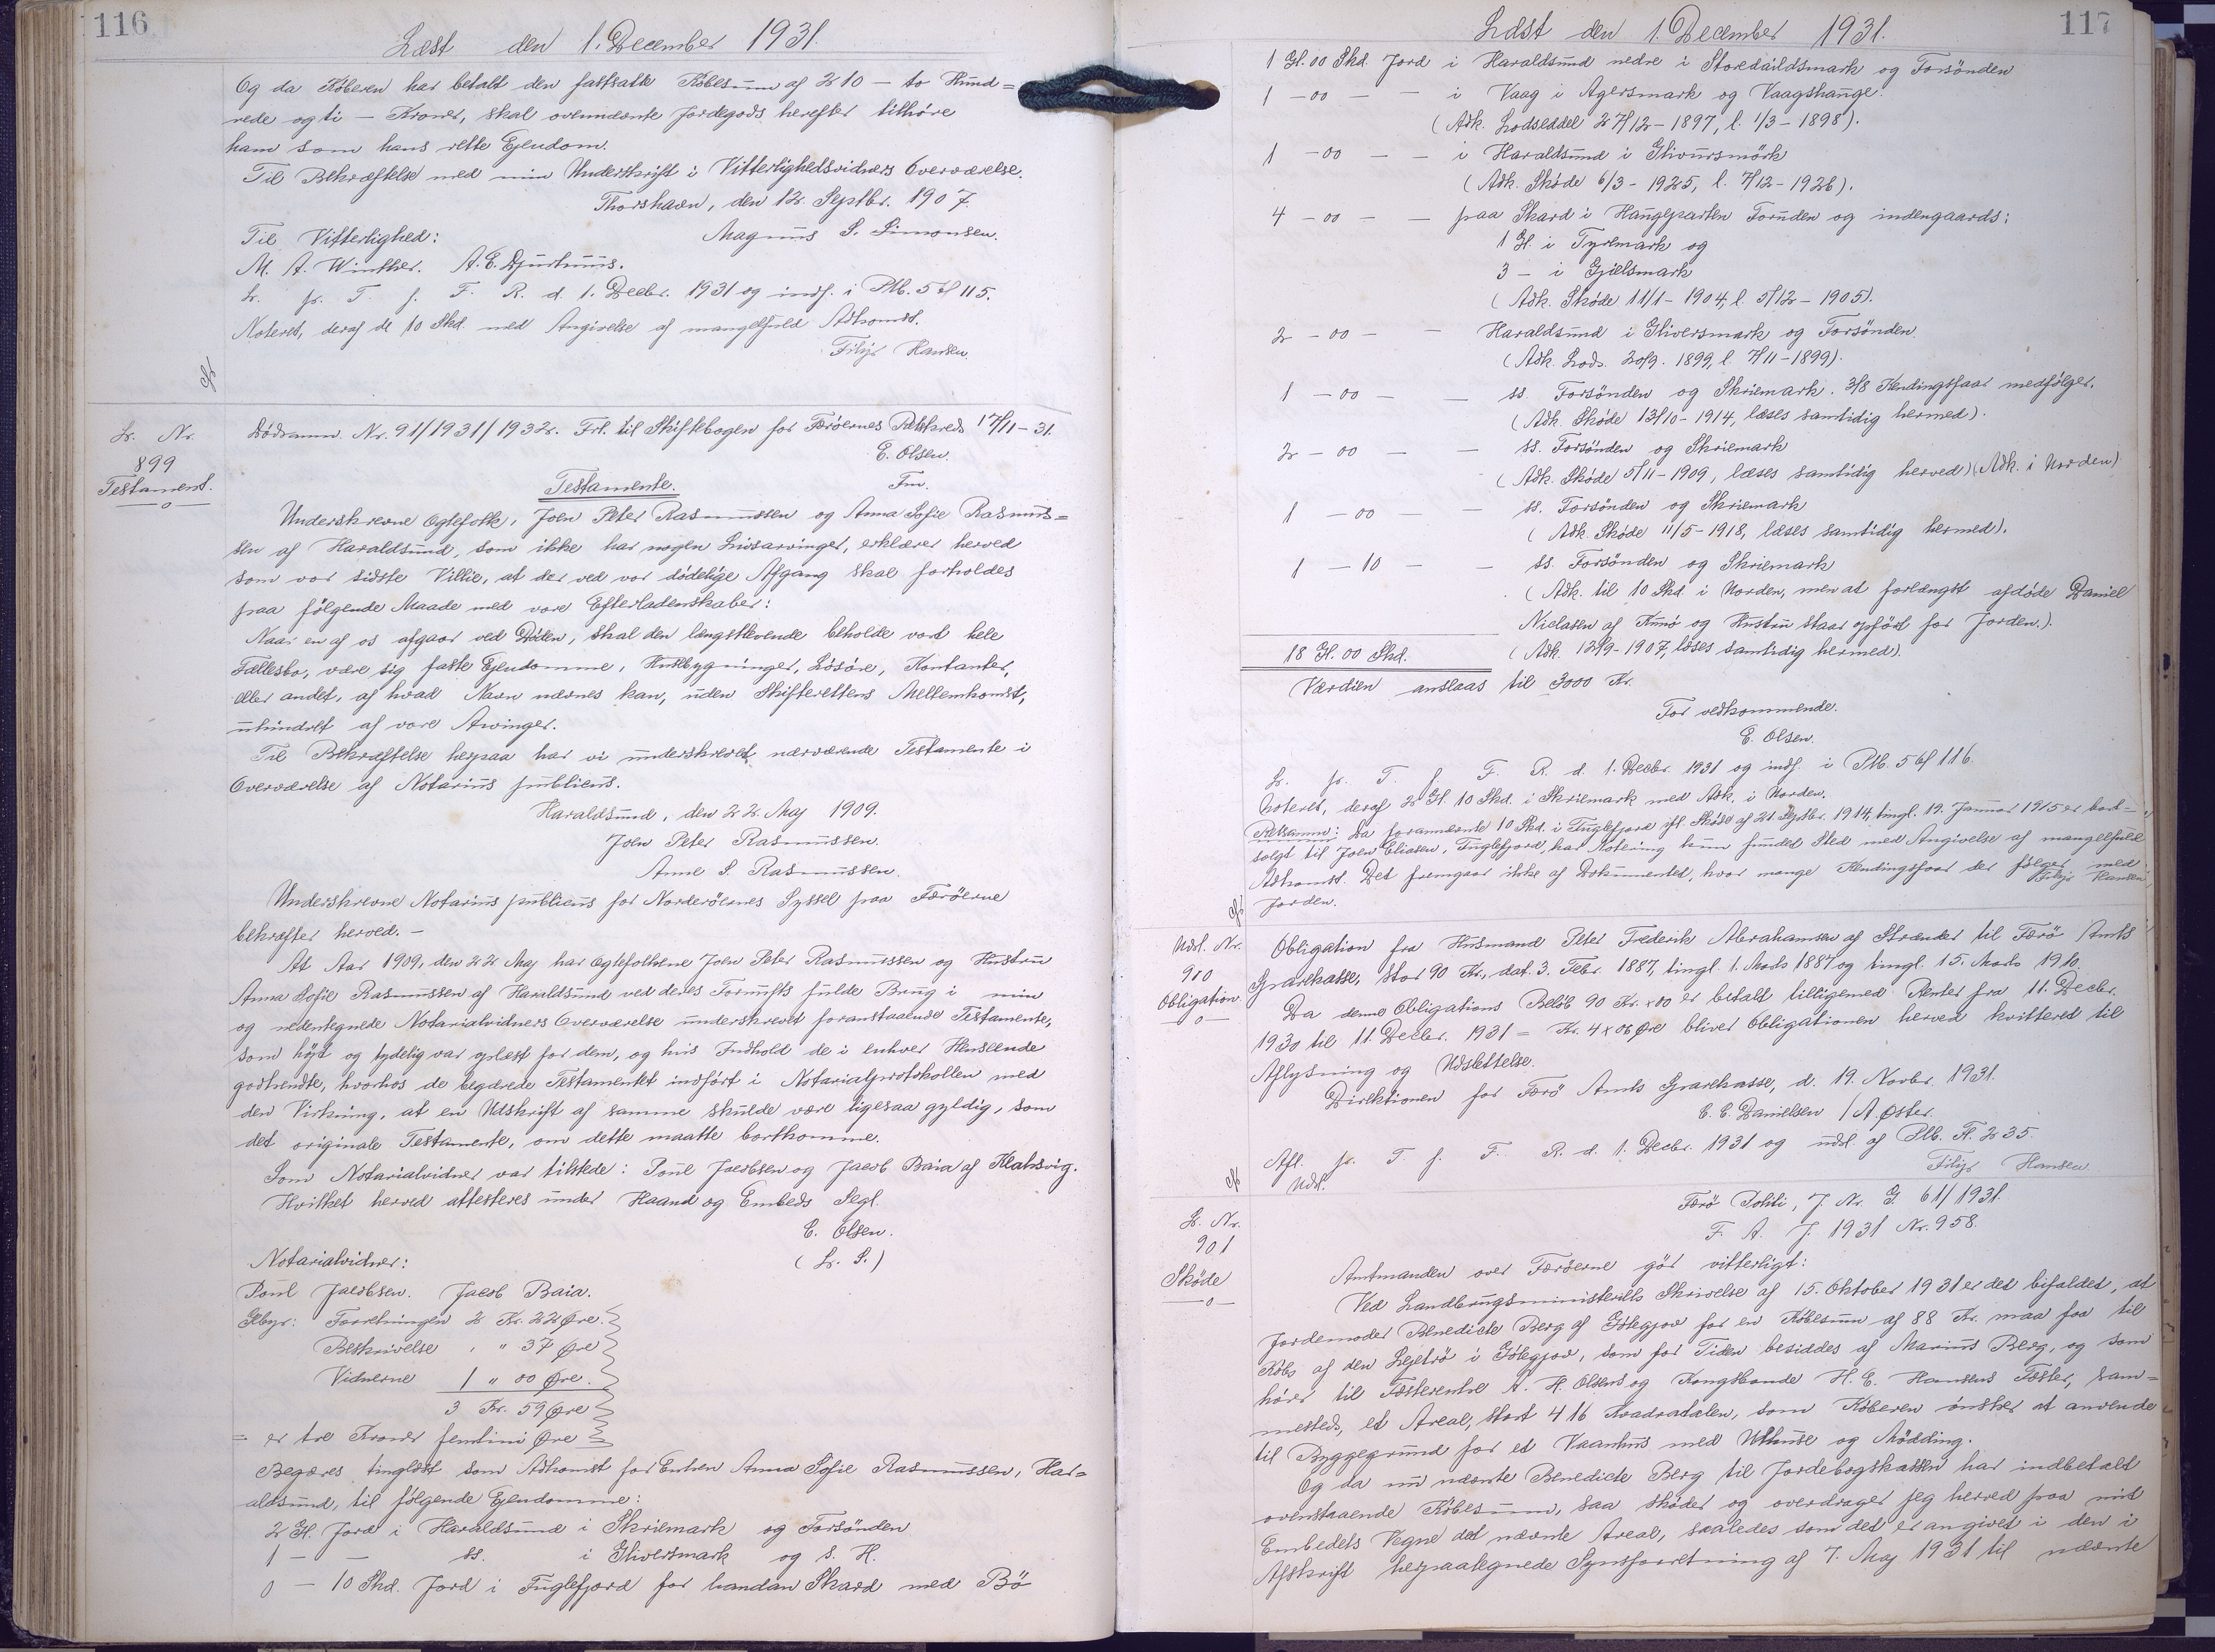 116
Læst den 1. December 1931.
Og da Køberen har betalt den fastsatte Købesum af 210 — to Hund=
rede og ti — Kroner, skal ovennævnte Jordegods herefter tilhøre
ham som hans rette Ejendom.
Til Bekræftelse med min Underskrift i Vitterlighedsvidners Overværelse.
Thorshavn, den 12. Septbr. 1907.
Til Vitterlighed: Magnus S. Simonsen.
M. A. Winther. A. C. Djurhuus.
L. p. T. f. F. R. d. 1. Decbr. 1931 og indf. i Ptb. 5 bl 115.
Noteret, deraf de 10 Skd. med Angivelse af mangelfuld Adkomst.
Filip Hansen.
L. Nr.
899
Testament.
Dødsanm. Nr. 91/1931/1932. Frl. til Skiftebogen for Færøernes Retskreds 17/11-31.
E. Olsen.
Fm.
Testamente.
Underskrevne Ægtefolk, Joen Peter Rasmussen og Anna Sofie Rasmus=
sen af Haraldsund, som ikke har nogen Livsarvinger, erklærer herved
som vor sidste Villie, at der ved vor dødelige Afgang skal forholdes
paa følgende Maade med vore Efterladenskaber:
Naar en af os afgaar ved Døden, skal den længstlevende beholde vort hele
Fællesbo, være sig faste Ejendomme, Husebygninger, Løsøre, Kontanter,
eller andet, af hvad Navn nævnes kan, uden Skifterettens Mellemkomst,
uhindret af vore Arvinger.
Til Bekræftelse herpaa har vi underskrevet nærværende Testamente i
Overværelse af Notarius publicus.
Haraldsund, den 22. Maj 1909.
Joen Peter Rasmussen.
Anne S. Rasmussen.
Underskrevne Notarius publicus for Norderøernes Syssel paa Færøerne
bekræfter herved. —
At Aar 1909, den 22 Maj har Ægtefolkene Joen Peter Rasmussen og Hustru
Anna Sofie Rasmussen af Haraldsund ved deres Fornufts fulde Brug i min
og nedentegnede Notarialvidners Overværelse underskrevet foranstaaende Testamente,
som højt og tydelig var oplæst for dem, og hvis Indhold de i enhver Henseende
godkendte, hvorhos de begærede Testamentet indført i Notarialprotokollen med
den Virkning, at en Udskrift af samme skulde være ligesaa gyldig, som
det originale Testamente, om dette maatte bortkomme.
Som Notarialvidner var tilstede: Poul Jacobsen og Jacob Baia af Klaksvig.
Hvilket herved attesteres under Haand og Embeds Segl.
E. Olsen.
Notarialvidner: (L. S.)
Poul Jacobsen. Jacob Baia.
Gebyr: Forretningen 2 Kr. 22 Øre.
Beskrivelse „ „ 37 Øre
Vidnerne 1 „ 00 Øre.
3 Kr. 59 Øre
= er tre Kroner femtini Øre
Begæres tinglæst som Adkomst for Enken Anna Sofie Rasmussen, Har=
aldsund, til følgende Ejendomme:
2 Gl. Jord i Haraldsund i Skriemark og Forsönden
1 — — ss. i Gliversmark og s. H.
0 — 10 Skd. Jord i Fuglefjord for handan Skard med Bö
117
Læst den 1. December 1931.
1 Gl. 00 Skd. Jord i Haraldsund nedre i Storedaildsmark og Forsönden
1 — 00 — — i Vaag i Agersmark og Vaagshauge.
(Adk. Lodseddel 27/12-1897, l. 1/3-1898).
1 — 00 — — i Haraldsund i Glivursmörk
(Adk. Skøde 6/3-1925, l. 7/12-1926).
4 — 00 — — paa Skard i Haugeparten Foruden og indengaards:
1 Gl. i Tyrlmark og
3 — i Gjelsmark
(Adk. Skøde 11/1-1904, l. 5/12-1905).
2 — 00 — — Haraldsund i Gliversmark og Forsönden
(Adk. Lods. 20/9. 1899, l. 7/11-1899).
1 — 00 — — ss. Forsönden og Skriemark. 3/8 Kendingsfaar medfølger.
(Adk. Skøde 13/10-1914, læses samtidig hermed).
2 — 00 — — ss. Forsönden og Skriemark
(Adk. Skøde 5/11-1909, læses samtidig herved) (Adk. i Norden)
1 — 00 — — ss. Forsönden og Skriemark
(Adk. Skøde 11/5-1918, læses samtidig hermed).
1 — 10 — — ss. Forsönden og Skriemark
(Adk. til 10 Skd. i Norden, men at forlængst afdøde Daniel
Nielasen af Kunø og Hustru staar opført for Jorden.).
18 Gl. 00 Skd. (Adk. 12/9-1907, læses samtidig hermed).
Værdien anslaas til 3000 Kr.
For vedkommende.
E. Olsen.
L. p. T. f. F. R. d. 1. Decbr. 1931 og indf. i Ptb. 5 bl 116.
Noteret, deraf 2 Gl. 10 Skd. i Skriemark med Adk. i Norden.
Retsanm: Da forannævnte 10 Skd. i Fuglefjord ifl. Skøde af 21. Septbr. 1914, tingl. 19. Januar 1915 er bort=
solgt til Joen Eliasen, Fuglefjord, har Notering kun fundet Sted med Angivelse af mangelfuld
Adkomst. Det fremgaar ikke af Dokumentet, hvor mange Kendingsfaar der følger med
Jorden. Filip Hansen
Udsl. Nr.
900
Obligation
Obligation fra Husmand Peter Frederik Abrahamsen af Strænder til Færø Amts
Sparekasse, stor 90 Kr., dat. 3. Febr. 1887, tingl. 1. Marts 1887 og tingl. 15. Marts 1910.
Da denne Obligations Beløb 90 Kr. x 00 er betalt tilligemed Renter fra 11. Decbr.
1930 til 11. Decbr. 1931 = Kr. 4 x 06 Øre bliver Obligationen herved kvitteret til
Aflysning og Udslettelse.
Direktionen for Færø Amts Sparekasse, d. 19. Novbr. 1931.
C. C. Danielsen / A. Øster.
Afl. p. T. f. F. R. d. 1. Decbr. 1931 og udsl. af Ptb. Fl. 235.
Udsl. Filip Hansen
L. Nr.
901
Skøde
Færø Politi, J. Nr. G. 61/1931.
F. A. J. 1931 Nr. 958.
Amtmanden over Færøerne gör vitterligt:
Ved Landbrugsministeriets Skrivelse af 15. Oktober 1931 er det bifaldet, at
Jordemoder Benedicte Berg af Gjøegjov for en Købesum af 88 Kr. maa faa til
Købs af den Lejetrø i Gjøegjov, som for Tiden besiddes af Marius Berg, og som
hører til Fæsterenke A. H. Olsens og Kongsbonde H. E. Hansens Fæster, sam=
mesteds, et Areal, stort 416 Kvadratalen, som Køberen ønsker at anvende
til Byggegrund for et Vaanhus med Uthuse og Mødding.
Og da nu nævnte Benedicte Berg til Jordebogskassen har indbetalt
ovenstaaende Købesum, saa skøder og overdrager jeg herved paa mit
Embedets Vegne det nævnte Areal, saaledes som det er angivet i den i
Afskrift herpaategnede Synsforretning af 7. Maj 1931 til nævnte